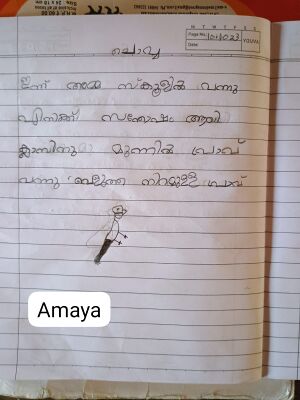 M T W T F S S
Page No.:
Date: 10-10-23
YOUVA
ചൊവ്വ
ഇന്ന് അമ്മ സ്കൂളിൽ വന്നു
എനിക്ക് സന്തോഷം ആയി
ക്ലാസിനു മുന്നിൽ പ്രാവ്
വന്നു വെളുത്ത നിറമുള്ള പ്രാവ്
Amaya